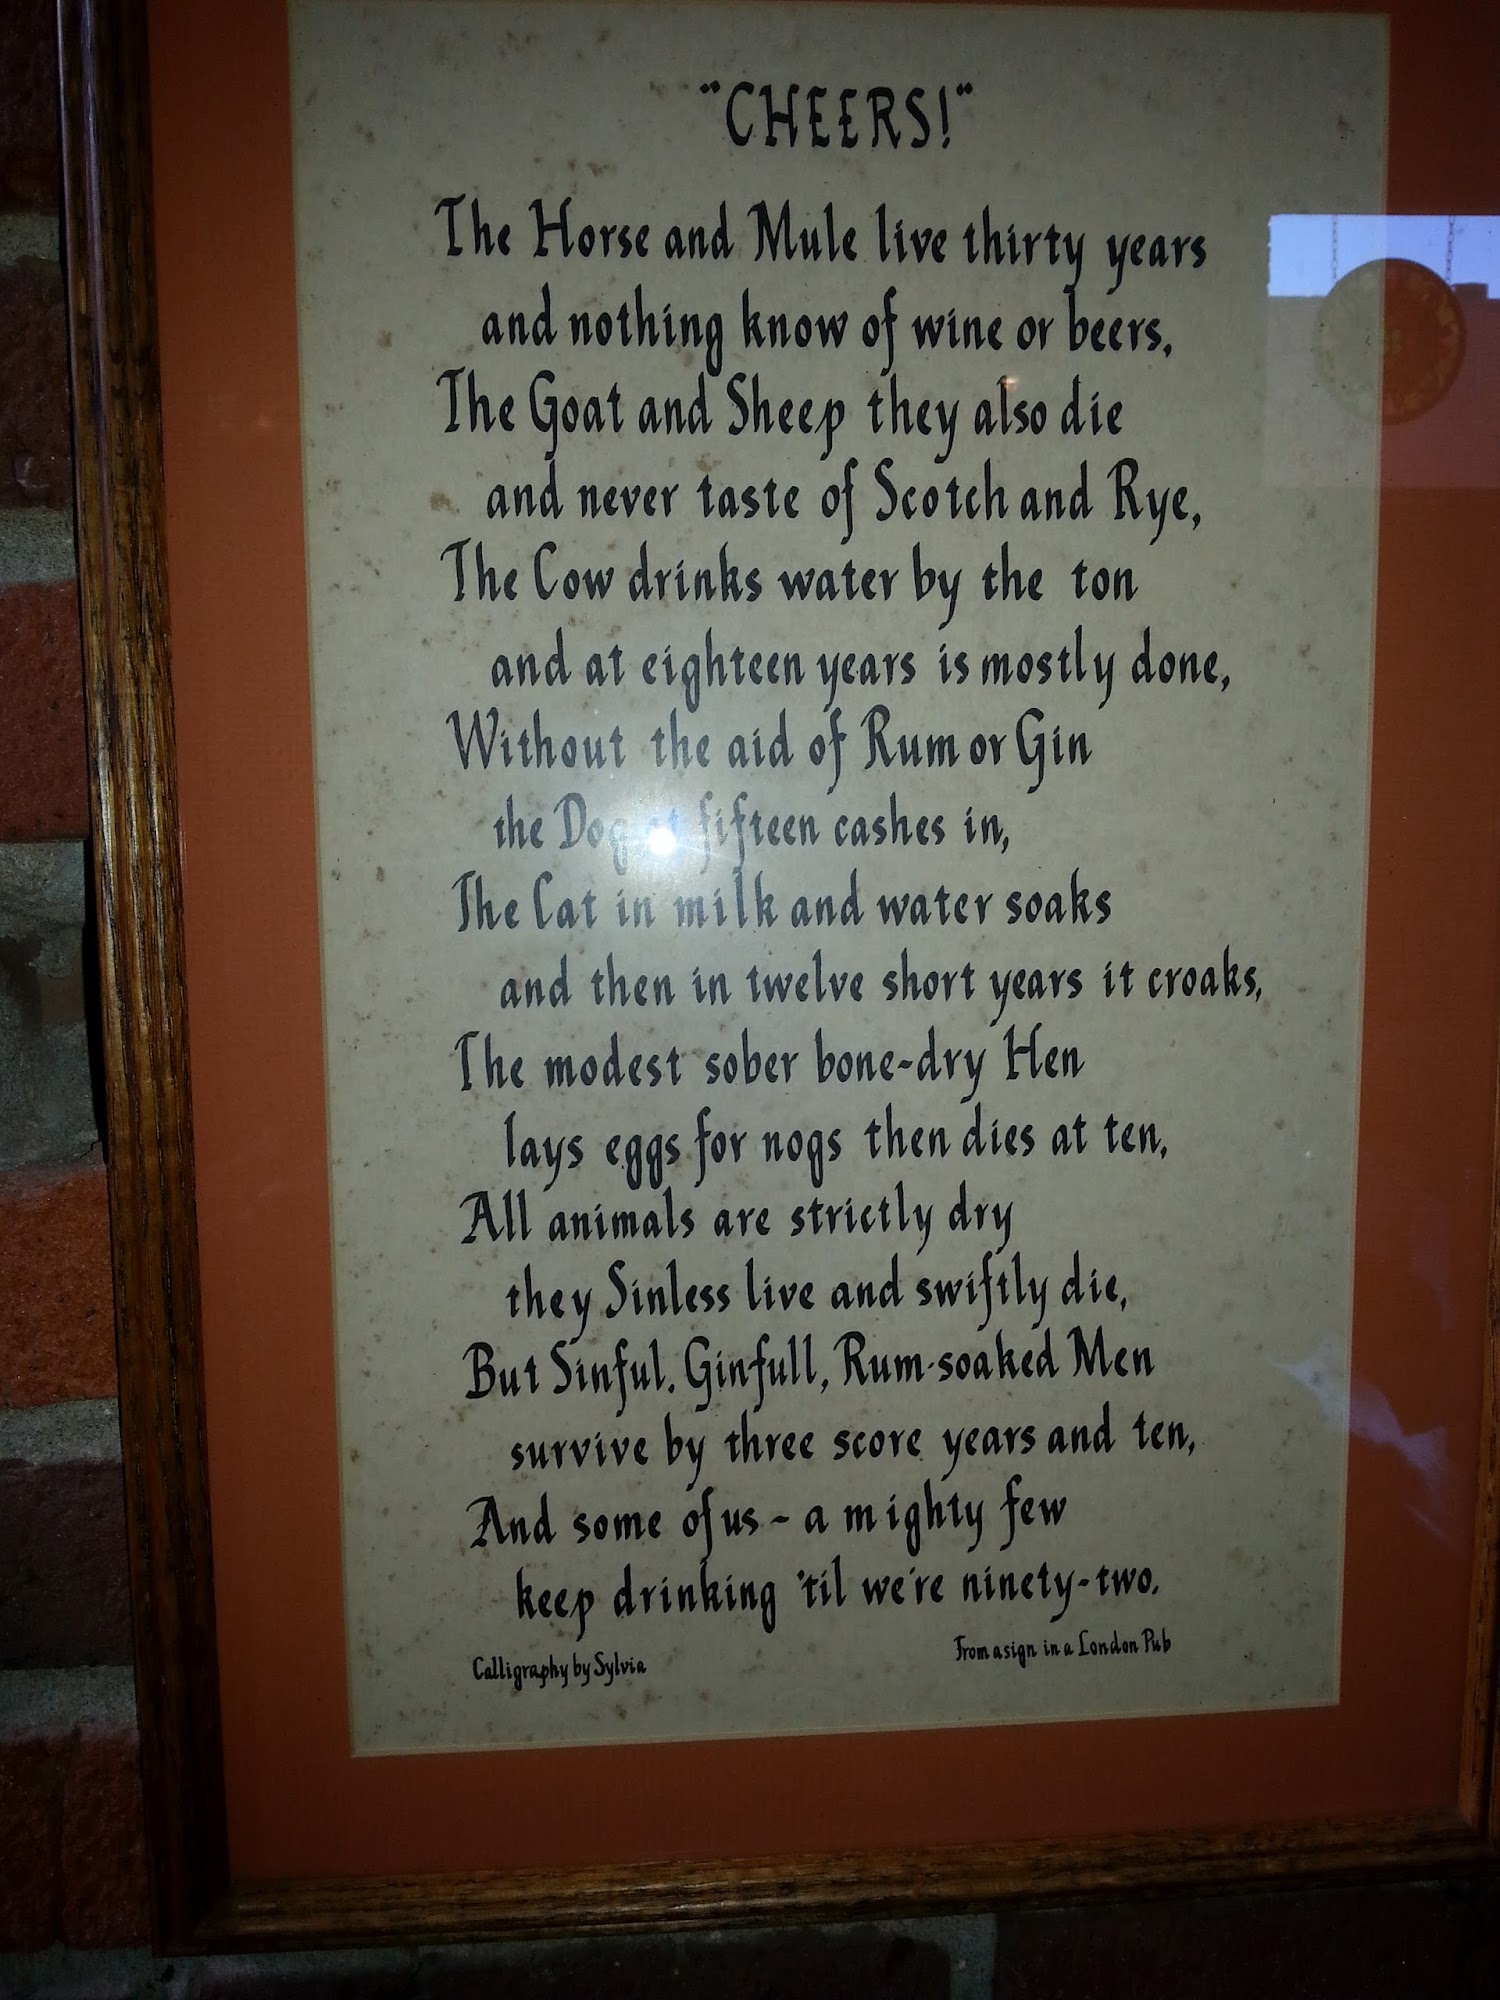 "CHEERS!"
The Horse and Mule live thirty years
and nothing know of wine or beers,
The Goat and Sheep they also die
and never taste of Scotch and Rye,
The Cow drinks water by the ton
and at eighteen years is mostly done,
Without the aid of Rum or Gin
the Dog at fifteen cashes in,
The Cat in milk and water soaks
and then in twelve short years it croaks,
The modest sober bone-dry Hen
lays eggs for nogs then dies at ten,
All animals are strictly dry
they Sinless live and swiftly die,
But Sinful, Ginfull, Rum-soaked Men
survive by three score years and ten,
And some of us - a mighty few
keep drinking 'til we're ninety-two.
Calligraphy by Sylvia
From a sign in a London Pub